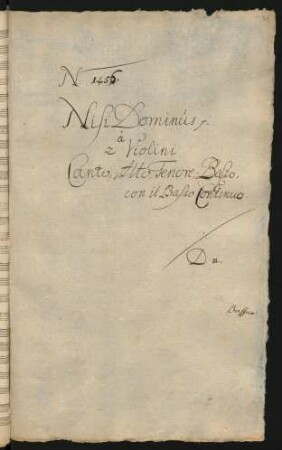 N 1456
Nisi Dominus.
à
2 Violini
Canto, Alto, Tenore, Basso,
con il Basso Continuo.
D